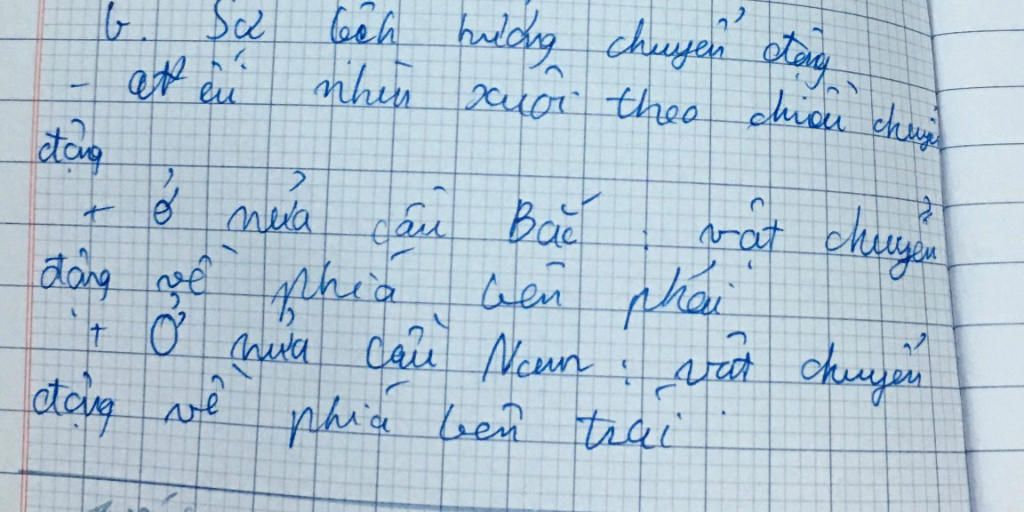 b. Sự lệch hướng chuyển động
- nếu nhìn xuôi theo chiều chuyển
động
+ ở nửa cầu Bắc : vật chuyển
động về phía bên phải
+ Ở nửa cầu Nam : vật chuyển
động về phía bên trái